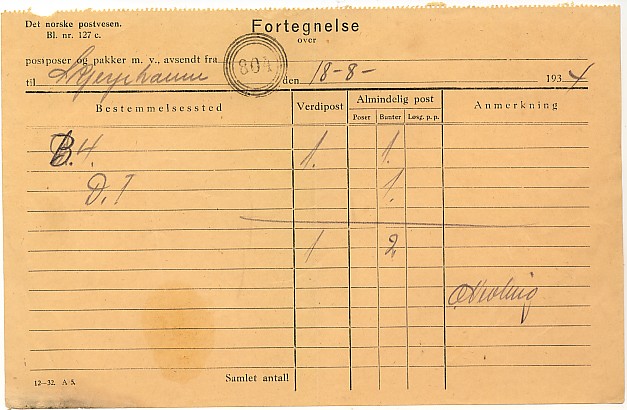 Det norske postvesen.
Bl. nr. 127 c.
Fortegnelse
over
postposer og pakker m. v., avsendt fra
804
til den 18-8- 1934
Bestemmelsessted Verdipost Almindelig post Anmerkning
Poser Bunter Løsg. p. p.
B. H. 1. 1.
D. T 1.
1 2
12—32. A 5. Samlet antall